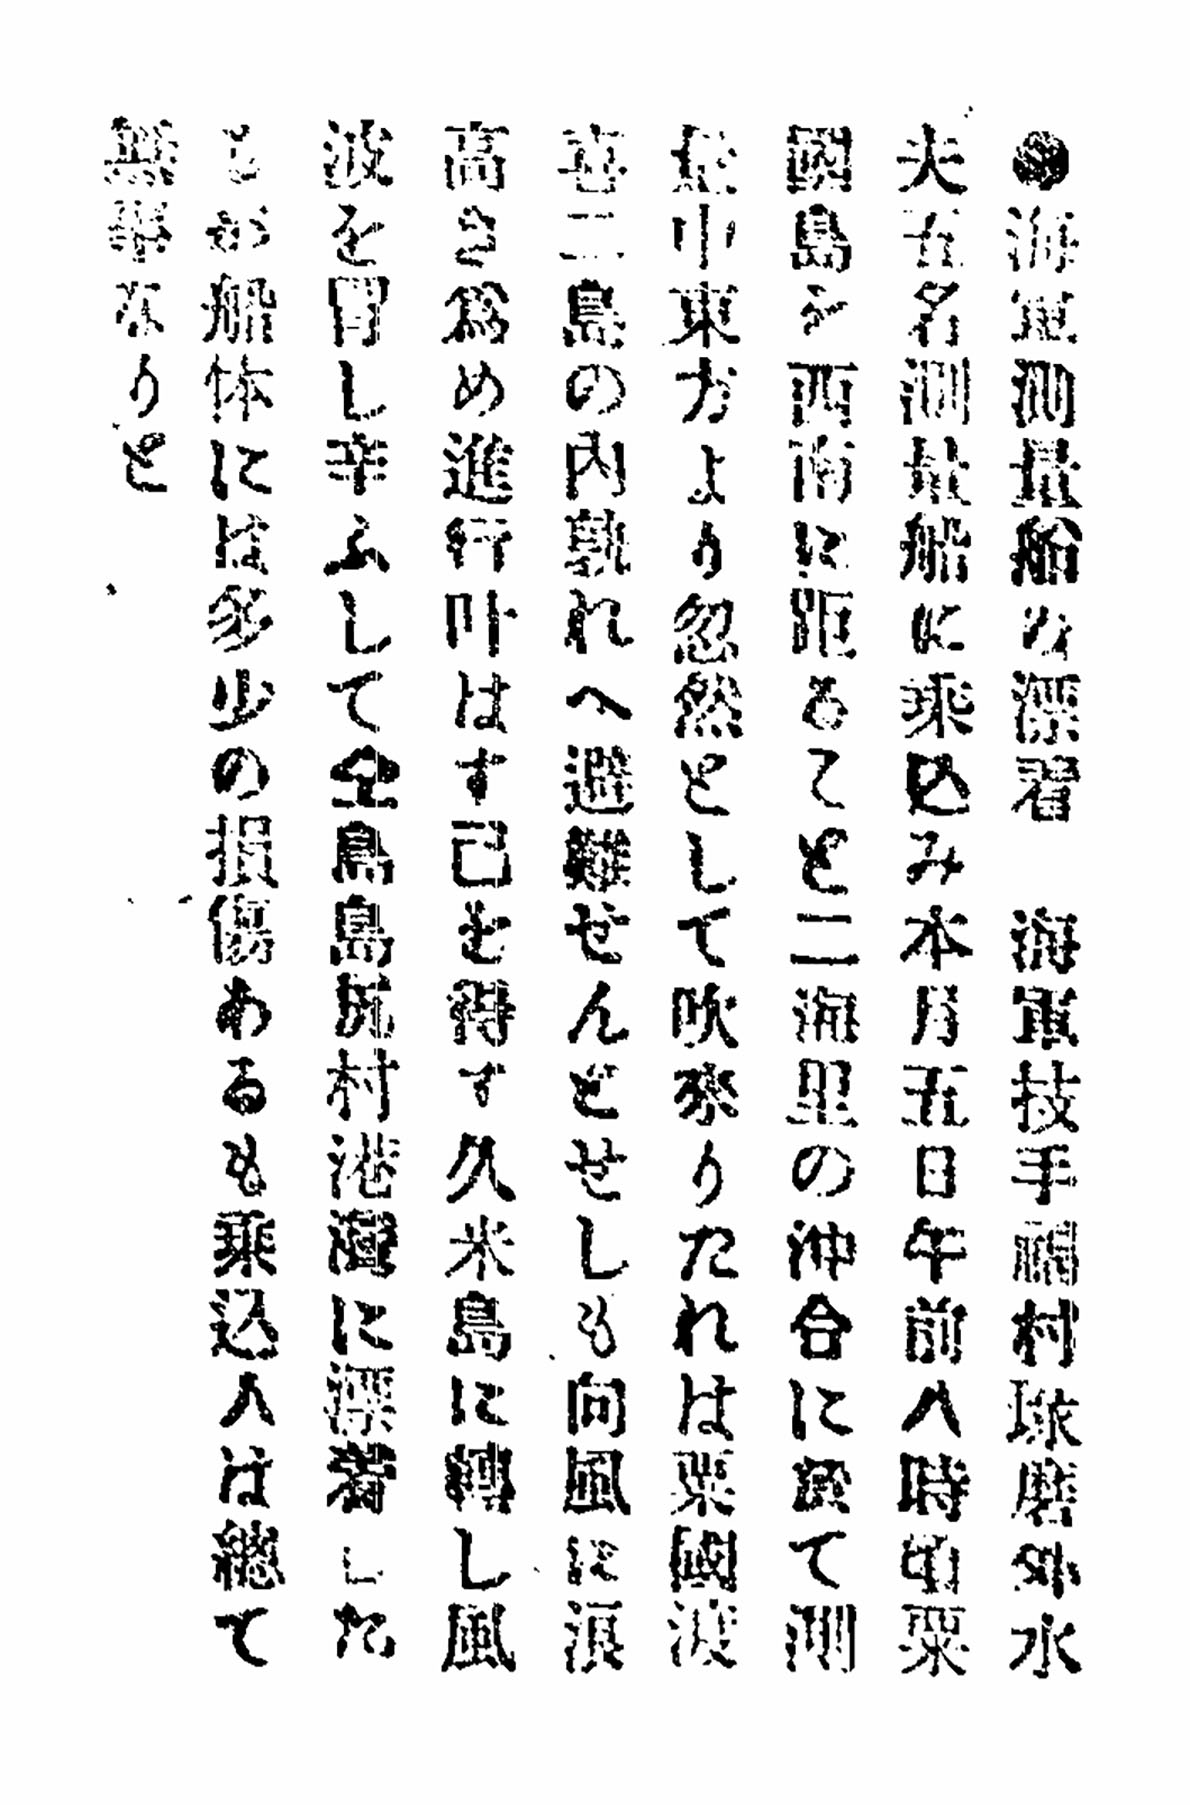 ●海軍測量船の漂着　海軍技手磵村球磨外水
夫五名測量船に乘込み本月五日午前八時頃粟
國島を西南に距ること二海里の沖合に於て測
量中東方より忽然として吹來りたれは粟國渡
喜二島の内孰れへ避難せんとせしも向風に浪
高き爲め進行叶はす已を得す久米島に轉し風
波を冒し辛ふして仝島島尻村港灣に漂着した
るが船体には多少の損傷あるも乘込人は總て
無事なりと